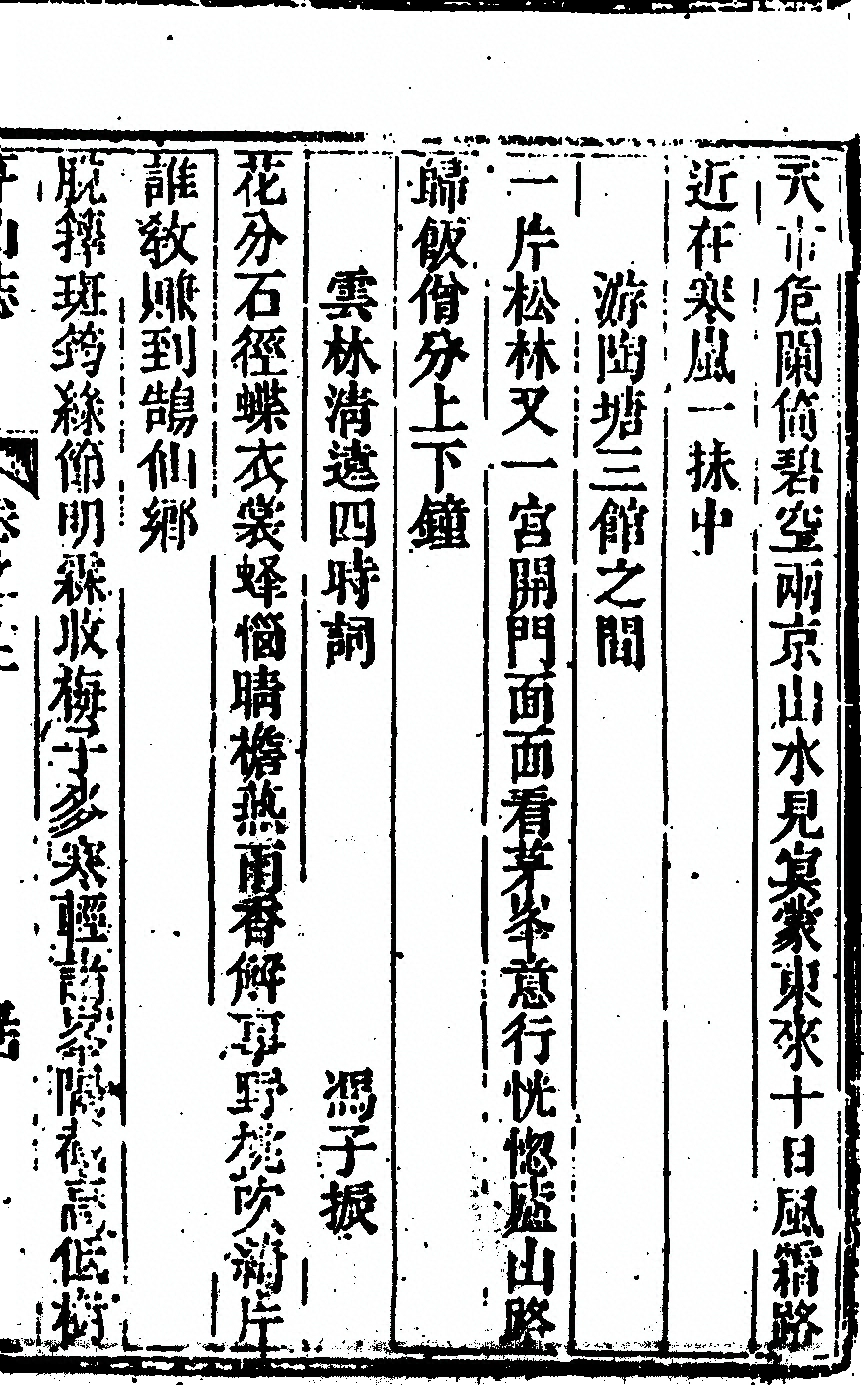 天市危闌倚碧空兩京山水見冥蒙東來十日風霜路
近在寒嵐一抹中
游陶塘三館之間
一片松林又一宮開門面面看茅峯意行恍惚廬山路
歸飯僧分上下鐘
雲林清遠四時詞 馮子振
花分石徑蝶衣裳蜂惱晴檐燕雨香解事野桃吹澗片
誰教賺到鵠仙鄉
脫籜斑筠綠節明霖收梅子多寒輕 隔 高低樹